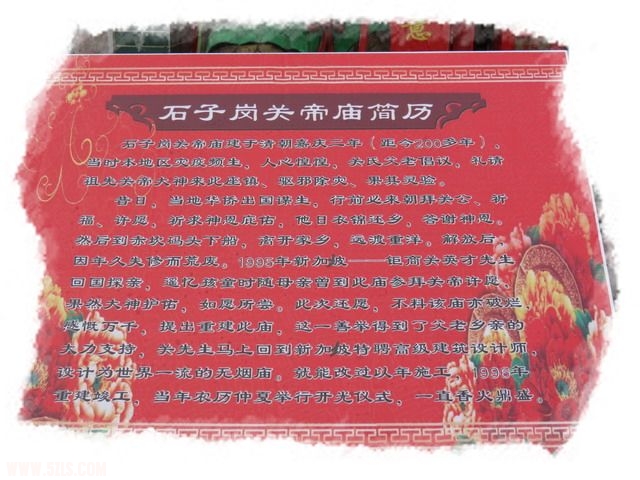 石子岗关帝庙简历
石子岗关帝庙建于清朝嘉庆三年（距今200多年）、
当时本地区灾疫频生、人心惶惶、关氏父老倡议，礼请
祖先关帝大神来此庄镇、驱邪除灾、果其灵验。
昔日，当地华侨出国谋生，行前必来朝拜关公、祈
福、许愿，祈求神恩庇佑，他日衣锦还乡，答谢神恩。
然后到赤坎码头下船，离开家乡，远渡重洋。解放后，
因年久失修而荒废。1995年新加坡——钜商关英才先生
回国探亲，追忆孩童时随母亲曾到此庙参拜关帝许愿，
果然大神护佑，如愿所尝。此次还愿，不料该庙亦破烂，
感慨万千，提出重建此庙，这一善举得到了父老乡亲的
大力支持，关先生马上回到新加坡特聘高级建筑设计师，
设计为世界一流的无烟庙。就能改过以年施工，1996年
重建竣工，当年农历仲夏举行开光仪式，一直香火鼎盛。
WWW.SJLS.COM